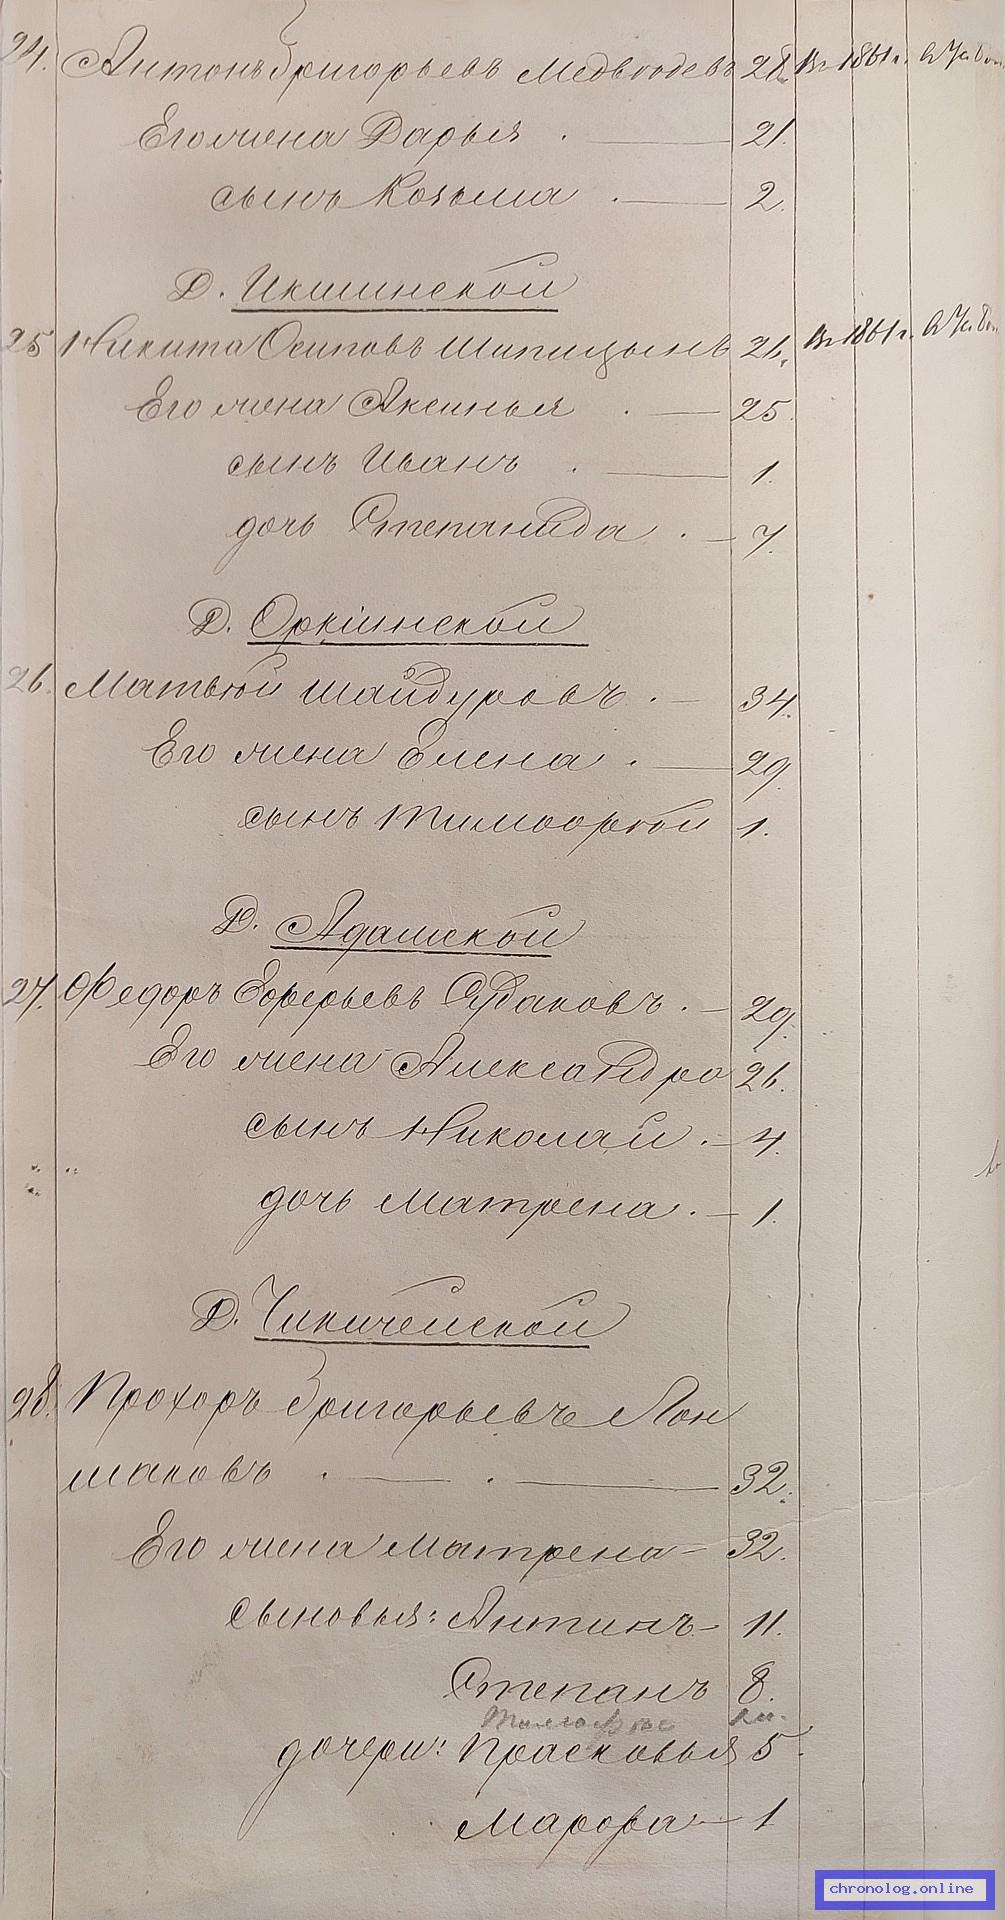 24. Антонъ Григорьевъ Медведевъ 28. Въ 1861 г. въ
Его жена Дарья . — 21.
сынъ Козьма . — 2.
Д. Икшинской
25 Никита Осиповъ Шипицынъ 26. Въ 1861 г. въ
Его жена Аксинья . — 25.
сынъ Иванъ . — 1.
дочь Степанида . — 7.
Д. Оркiинской
26. Матвей Шайдуровъ . — 34.
Его жена Елена . — 29.
сынъ Тимоорей 1.
Д. Адашской
27. Федоръ Еоферьевъ Судаковъ . — 29.
Его жена Александра 26.
сынъ Николай . — 4.
дочь Матрена . — 1.
Д. Чикичейской
28. Прохоръ Григорьевъ Лон
шаковъ . — . — 32.
Его жена Матрена — 32.
сыновья: Антипъ — 11.
Степанъ 8.
дочери: Прасковья 5.
Марфа — 1
chronolog.online